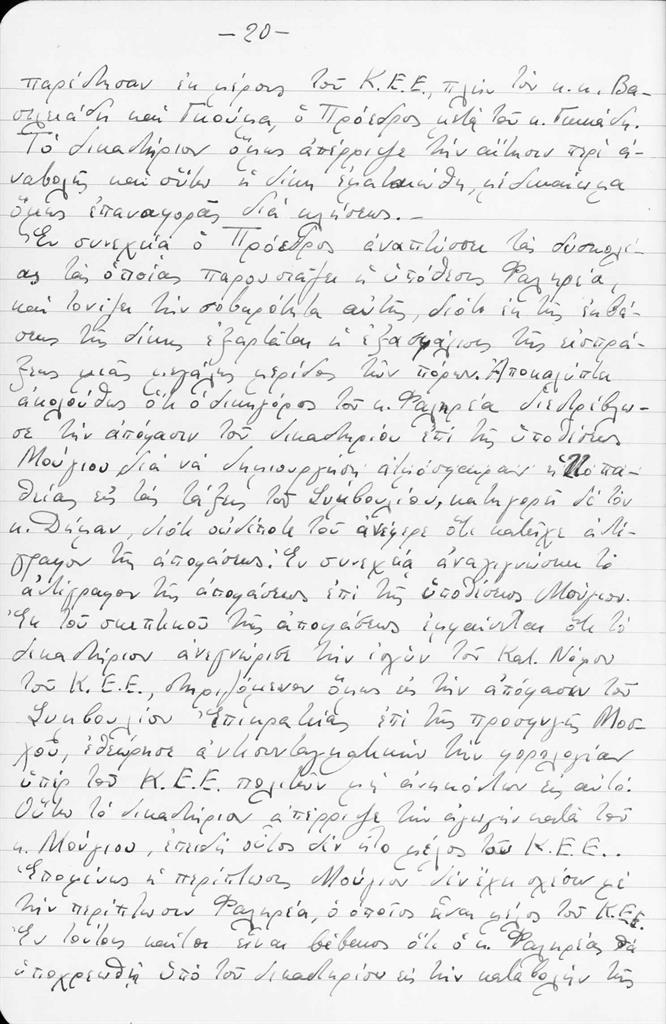 -20-
παρέστησαν ἐκ μέρους τοῦ Κ.Ε.Ε., πλὴν τῶν κ.κ. Βα-
σιλειάδη καὶ Γκούμα, ὁ Πρόεδρος μετὰ τοῦ κ.
Τὸ δικαστήριον ὅμως ἀπέρριψε τὴν αἴτησιν περὶ ἀ-
ναβολῆς καὶ οὕτω ἡ δίκη ἐματαιώθη, μὲ δικαίωμα
ὅμως ἐπαναφορᾶς διὰ κλήσεως.-
Ἐν συνεχείᾳ ὁ Πρόεδρος ἀναπτύσσει τὰς δυσκολί-
ας τὰς ὁποίας παρουσιάζει ἡ ὑπόθεσις Φαληρέα,
καὶ τονίζει τὴν σοβαρότητα αὐτῆς, διότι ἐκ τῆς ἐκβά-
σεως τῆς δίκης ἐξαρτᾶται ἡ ἐξασφάλισις τῆς εἰσπρά-
ξεως μιᾶς μεγάλης μερίδος τῶν πόρων. Ἀποκαλύπτει
ἀκολούθως ὅτι ὁ δικηγόρος τοῦ κ. Φαληρέα διεστρέβλω-
σε τὴν ἀπόφασιν τοῦ δικαστηρίου ἐπὶ τῆς ὑποθέσεως
Μούγιου διὰ νὰ δημιουργήσῃ ἀτμόσφαιραν ἡττοπα-
θείας εἰς τὰς τάξεις τοῦ Συμβουλίου, κατηγορεῖ δὲ τὸν
κ. Δήμαν, διότι οὐδέποτε τοῦ ἀνέφερε ὅτι κατεῖχε ἀντί-
γραφον τῆς ἀποφάσεως. Ἐν συνεχείᾳ ἀναγιγνώσκει τὸ
ἀντίγραφον τῆς ἀποφάσεως ἐπὶ τῆς ὑποθέσεως Μούγιου.
Ἐκ τοῦ σκεπτικοῦ τῆς ἀποφάσεως ἐμφαίνεται ὅτι τὸ
δικαστήριον ἀνεγνώρισε τὴν ἰσχὺν τοῦ Κατ. Νόμου
τοῦ Κ.Ε.Ε., στηριζόμενον ὅμως εἰς τὴν ἀπόφασιν τοῦ
Συμβουλίου Ἐπικρατείας ἐπὶ τῆς προσφυγῆς Μοσ-
χοῦ, ἐθεώρησε ἀντισυνταγματικὴν τὴν φορολογίαν
ὑπὲρ τοῦ Κ.Ε.Ε. πολιτῶν μὴ ἀνηκόντων εἰς αὐτό.
Οὕτω τὸ δικαστήριον ἀπέρριψε τὴν ἀγωγὴν κατὰ τοῦ
κ. Μούγιου, ἐπειδὴ οὗτος δὲν ἦτο μέλος τοῦ Κ.Ε.Ε..
Ἑπομένως ἡ περίπτωσις Μούγιου δὲν ἔχει σχέσιν μὲ
τὴν περίπτωσιν Φαληρέα, ὁ ὁποῖος εἶναι μέλος τοῦ Κ.Ε.Ε.
Ἐν τούτοις καίτοι εἶναι βέβαιος ὅτι ὁ κ. Φαληρέας θὰ
ὑποχρεωθῇ ὑπὸ τοῦ δικαστηρίου εἰς τὴν καταβολὴν τῆς